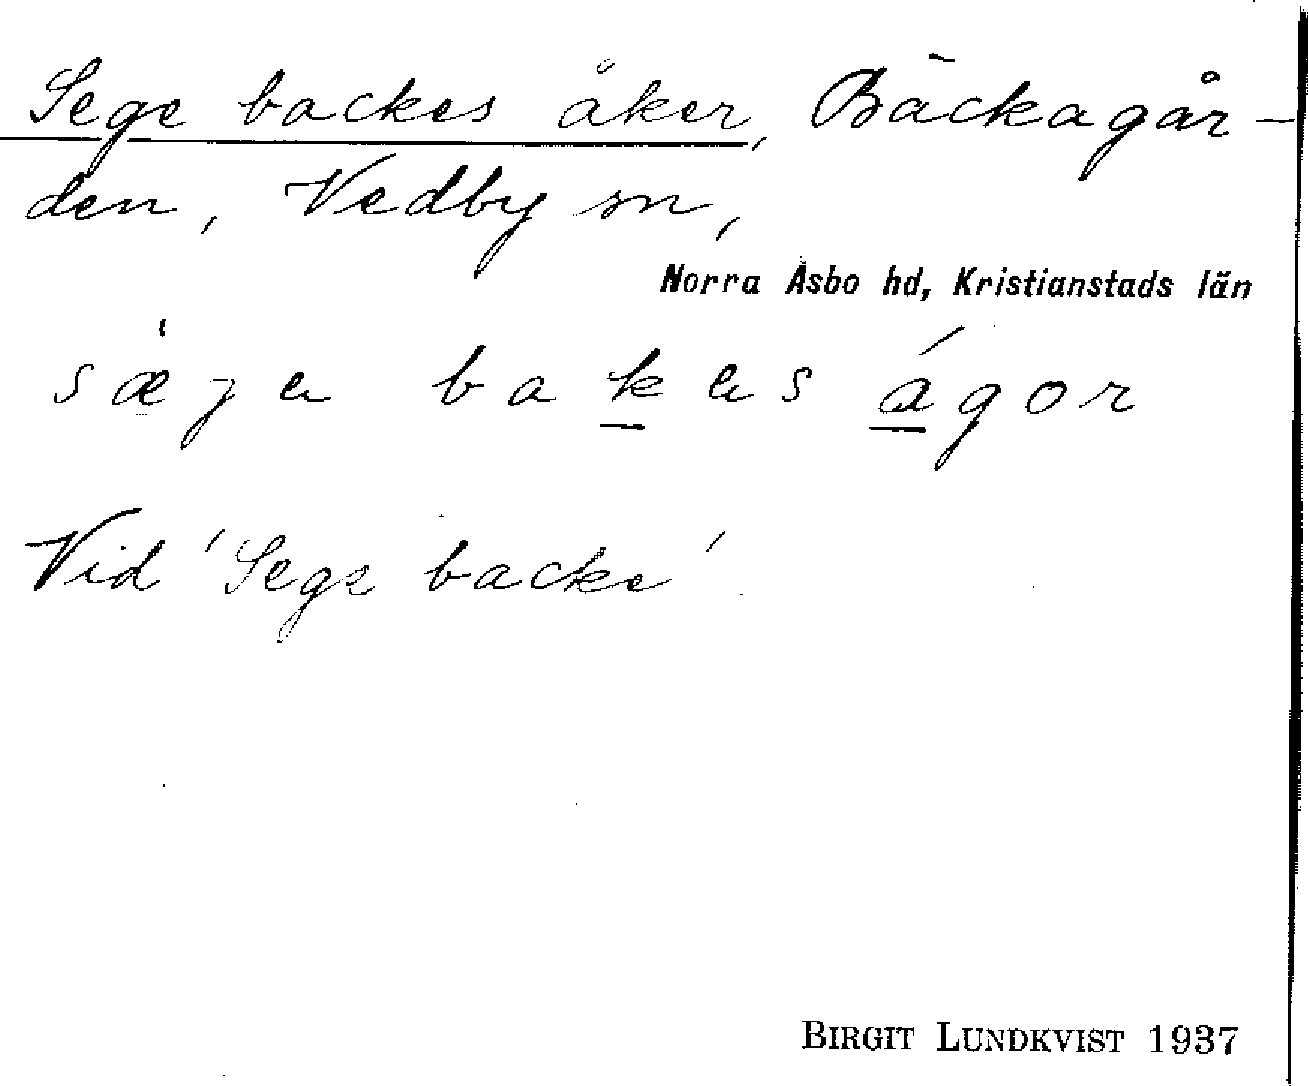 Sege backes åker, Bäckagår-
den, Vedby sn,
Norra Åsbo hd, Kristianstads län
sæ̍ɡa bak̲as á̲gor
Vid 'Sege backe'
BIRGIT LUNDKVIST 1937